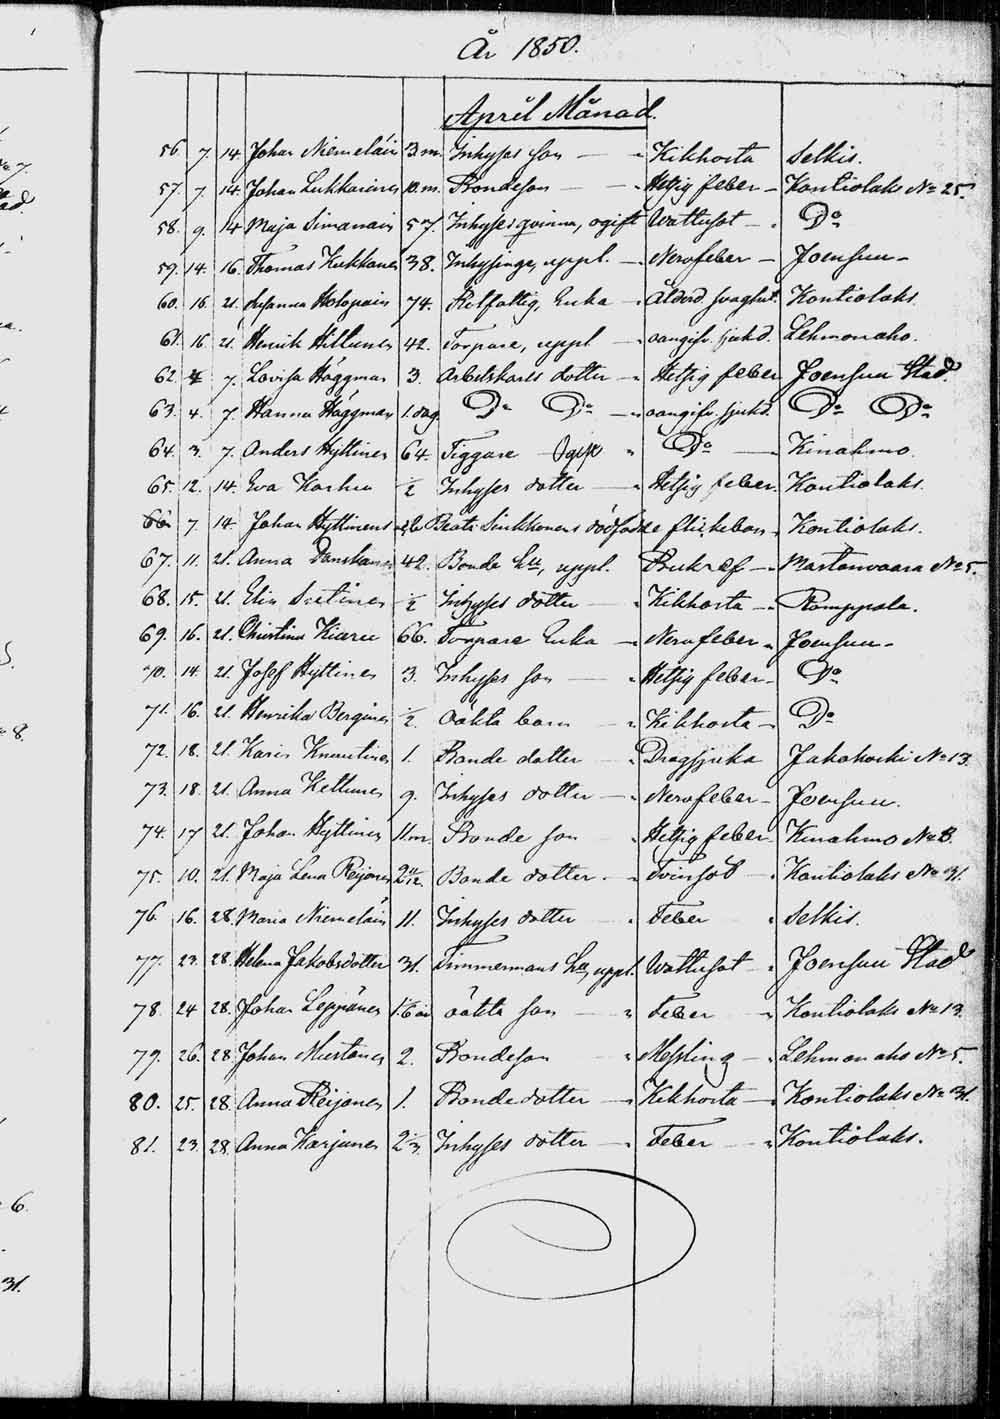 År 1850.
April Månad.
56. 7. 14. Johan Niemeläin 3 m. Inhyses son — Kikhosta Selkis.
57. 7. 14. Johan Lukkarinen 10. m. Bondeson — Hetsig feber — Kontiolaks No 25.
58. 9. 14 Maja Simanain 57. Inhyses qvinna, ogift Wattusot — Do
59. 14. 16. Thomas Kukkanen 38. Inhysinge, uppl. — Nervfeber — Joensuu —
60. 16. 21. Susanna Holopain 74. Rotfattig, Enka — Ålderd. svaghet. Kontiolaks.
61. 16. 21. Henrik Hiltunen 42. Torpare, uppl — oangifv. sjukd. Lehmonaho.
62. 4 7. Lovisa Häggman 3. Arbetskarls dotter — Hetsig feber Joensuu Stad.
63. 4. 7. Hanna Häggman 1. dag Do Do — oangifv. sjukd. Do Do
64. 3. 7. Anders Hyttinen 64. Tiggare Ogift Do — Kinahmo.
65. 12. 14. Eva Karhu ½ Inhyses dotter — Hetsig feber. Kontiolaks.
66. 7 14. Johan Hyttinens o. Beata Sinkkonens dödfödde flickebarn Kontiolaks.
67. 11. 21. Anna 42. Bonde hu, uppl. Bukref — Martonvaara No 5.
68. 15. 21. Elin ½ Inhyses dotter — Kikhosta — Romppala.
69. 16. 21. Christina Kiuru 66. Torpare Enka — Nervfeber Joensuu —
70. 14. 21. Josef Hyttinen 3. Inhyses son — Hetsig feber — Do
71. 16. 21. Henrika Bergman ½ oäkta barn — Kikhosta — Do
72. 18. 21. Karin 1. Bonde dotter — Dragsjuka Jakokoski No 13.
73. 18. 21. Anna Kettunen 9. Inhyses dotter — Nervfeber — Joensuu.
74. 17 21. Johan Hyttinen 11. m Bonde son — Hetsig feber. Kinahmo No 8.
75. 10. 21. Maja Lena Reijonen 2 Bonde dotter — Tvinsot — Kontiolaks No 31.
76. 16. 28. Maria Niemeläin 11. Inhyses dotter — Feber Selkis.
77. 23. 28. Helena Jakobsdotter 31. Timmermans hu, uppl. Wattusot — Joensuu Stad
78. 24 28. Johan Leppänen oäkta son — Feber — Kontiolaks No 13.
79. 26. 28. Johan Mustonen 2. Bondeson Messling — Lehmonaho No 5.
80. 25. 28. Anna Reijonen 1. Bonde dotter — Kikhosta — Kontiolaks No 31.
81. 23. 28. Anna Karjunen 2 Inhyses dotter — Feber — Kontiolaks.